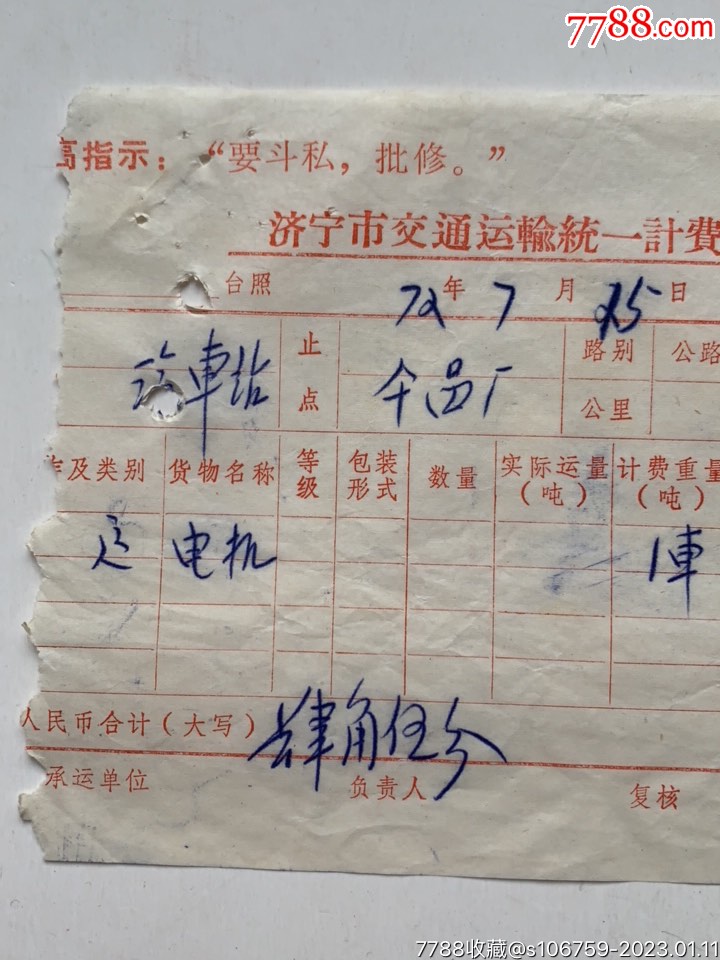 7788.com
高指示：“要斗私，批修。”
济宁市交通运輸統一計費
台照 72年7月25日
汽車站 止点 路别 公路
公里
及类别 货物名称 等级 包装形式 数量 实际运量（吨） 计费重量（吨）
电机 1車
人民币合计（大写） 肆角伍分
承运单位 负责人 复核
7788收藏@s106759-2023.01.11